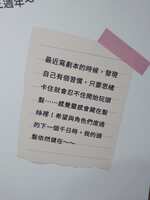 週年~
最近寫劇本的時候，發現
自己有個習慣，只要思緒
卡住就會忍不住開始玩頭
髮……感覺靈感會藏在髮
絲裡！希望與角色們度過
的下一個千日時，我的頭
髮依然健在~~